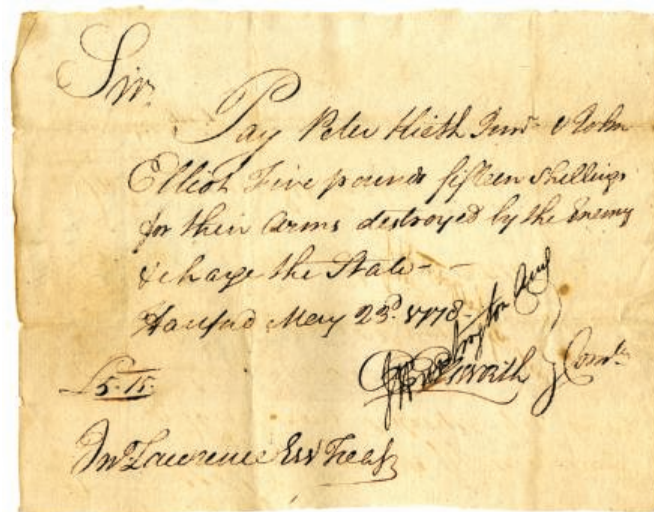 Sir
Pay Peter Hieth Junr & John
Elliot Five pounds fifteen Shillings
for their Arms destroyed by the Enemy
& charge the State -
Hartford May 23d. 1778 -
£5.15.
Comtee
Jno Lawrence Esqr Treasr